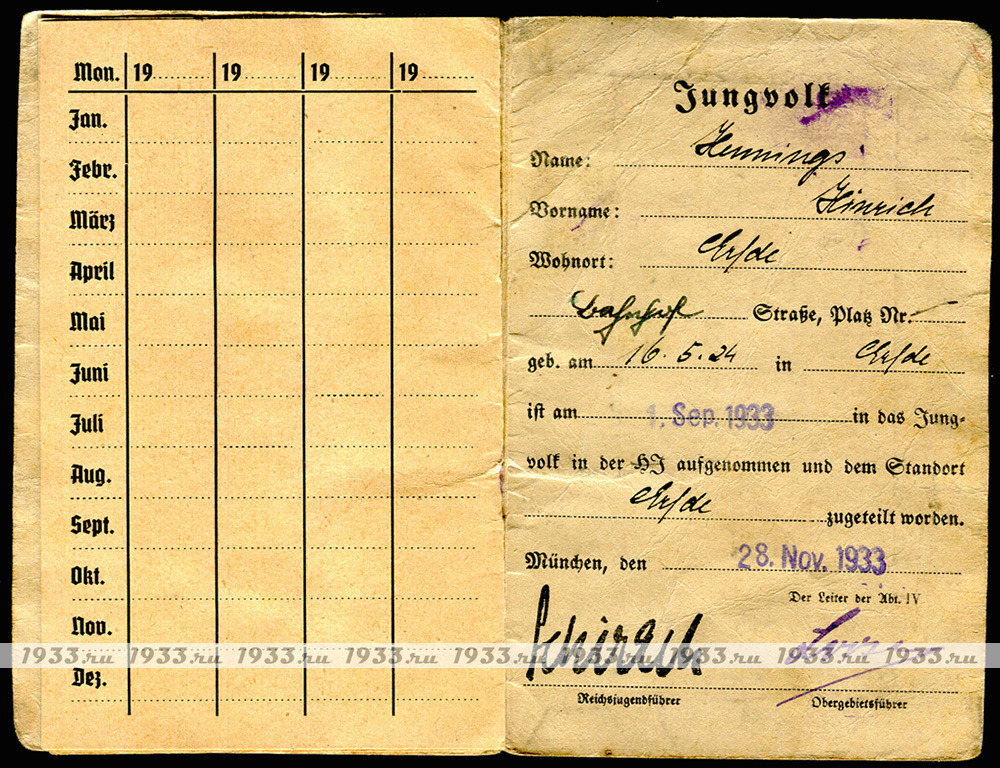 Mon. 19 19 19 19
Jan.
Febr.
März
April
Mai
Juni
Juli
Aug.
Sept.
Okt.
Nov.
Dez.
Jungvolk
Name: Hennings
Vorname: Hinrich
Wohnort: Erfde
Bahnhof Straße, Platz Nr. –
geb. am 16.5.24 in Erfde
ist am 1. Sep. 1933 in das Jung-
volk in der HJ aufgenommen und dem Standort
Erfde zugeteilt worden.
München, den 28. Nov. 1933
Der Leiter der Abt. IV
Schirach
1933.ru 1933.ru 1933.ru 1933.ru 1933.ru 1933.ru 1933.ru 1933.ru 1933.ru
Reichsjugendführer Obergebietsführer